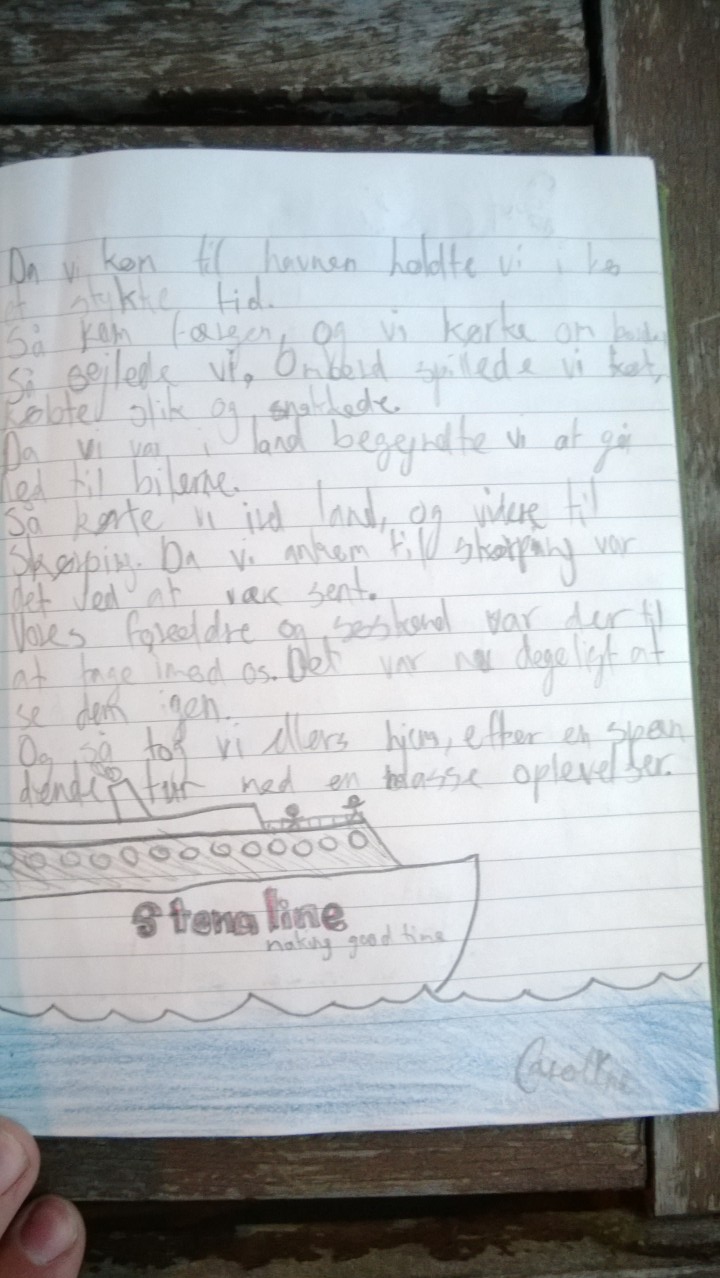 Da vi kom til havnen holdte vi i kø
et stykke tid.
Så kom færgen, og vi kørte om
Så sejlede vi. Ombord spillede vi kort,
købte slik og snakkede.
Da vi var i land begyndte vi at gå
ned til bilerne.
Så kørte vi ind land, og videre til
Skørping. Da vi ankom til skørping var
det ved at være sent.
Vores forældre og søskend var der til
at tage imod os. Det var nu degeligt at
se dem igen.
Og så tog vi ellers hjem, efter en spæn
dende tur med en masse oplevelser.
Stena line
making good time
Caroline